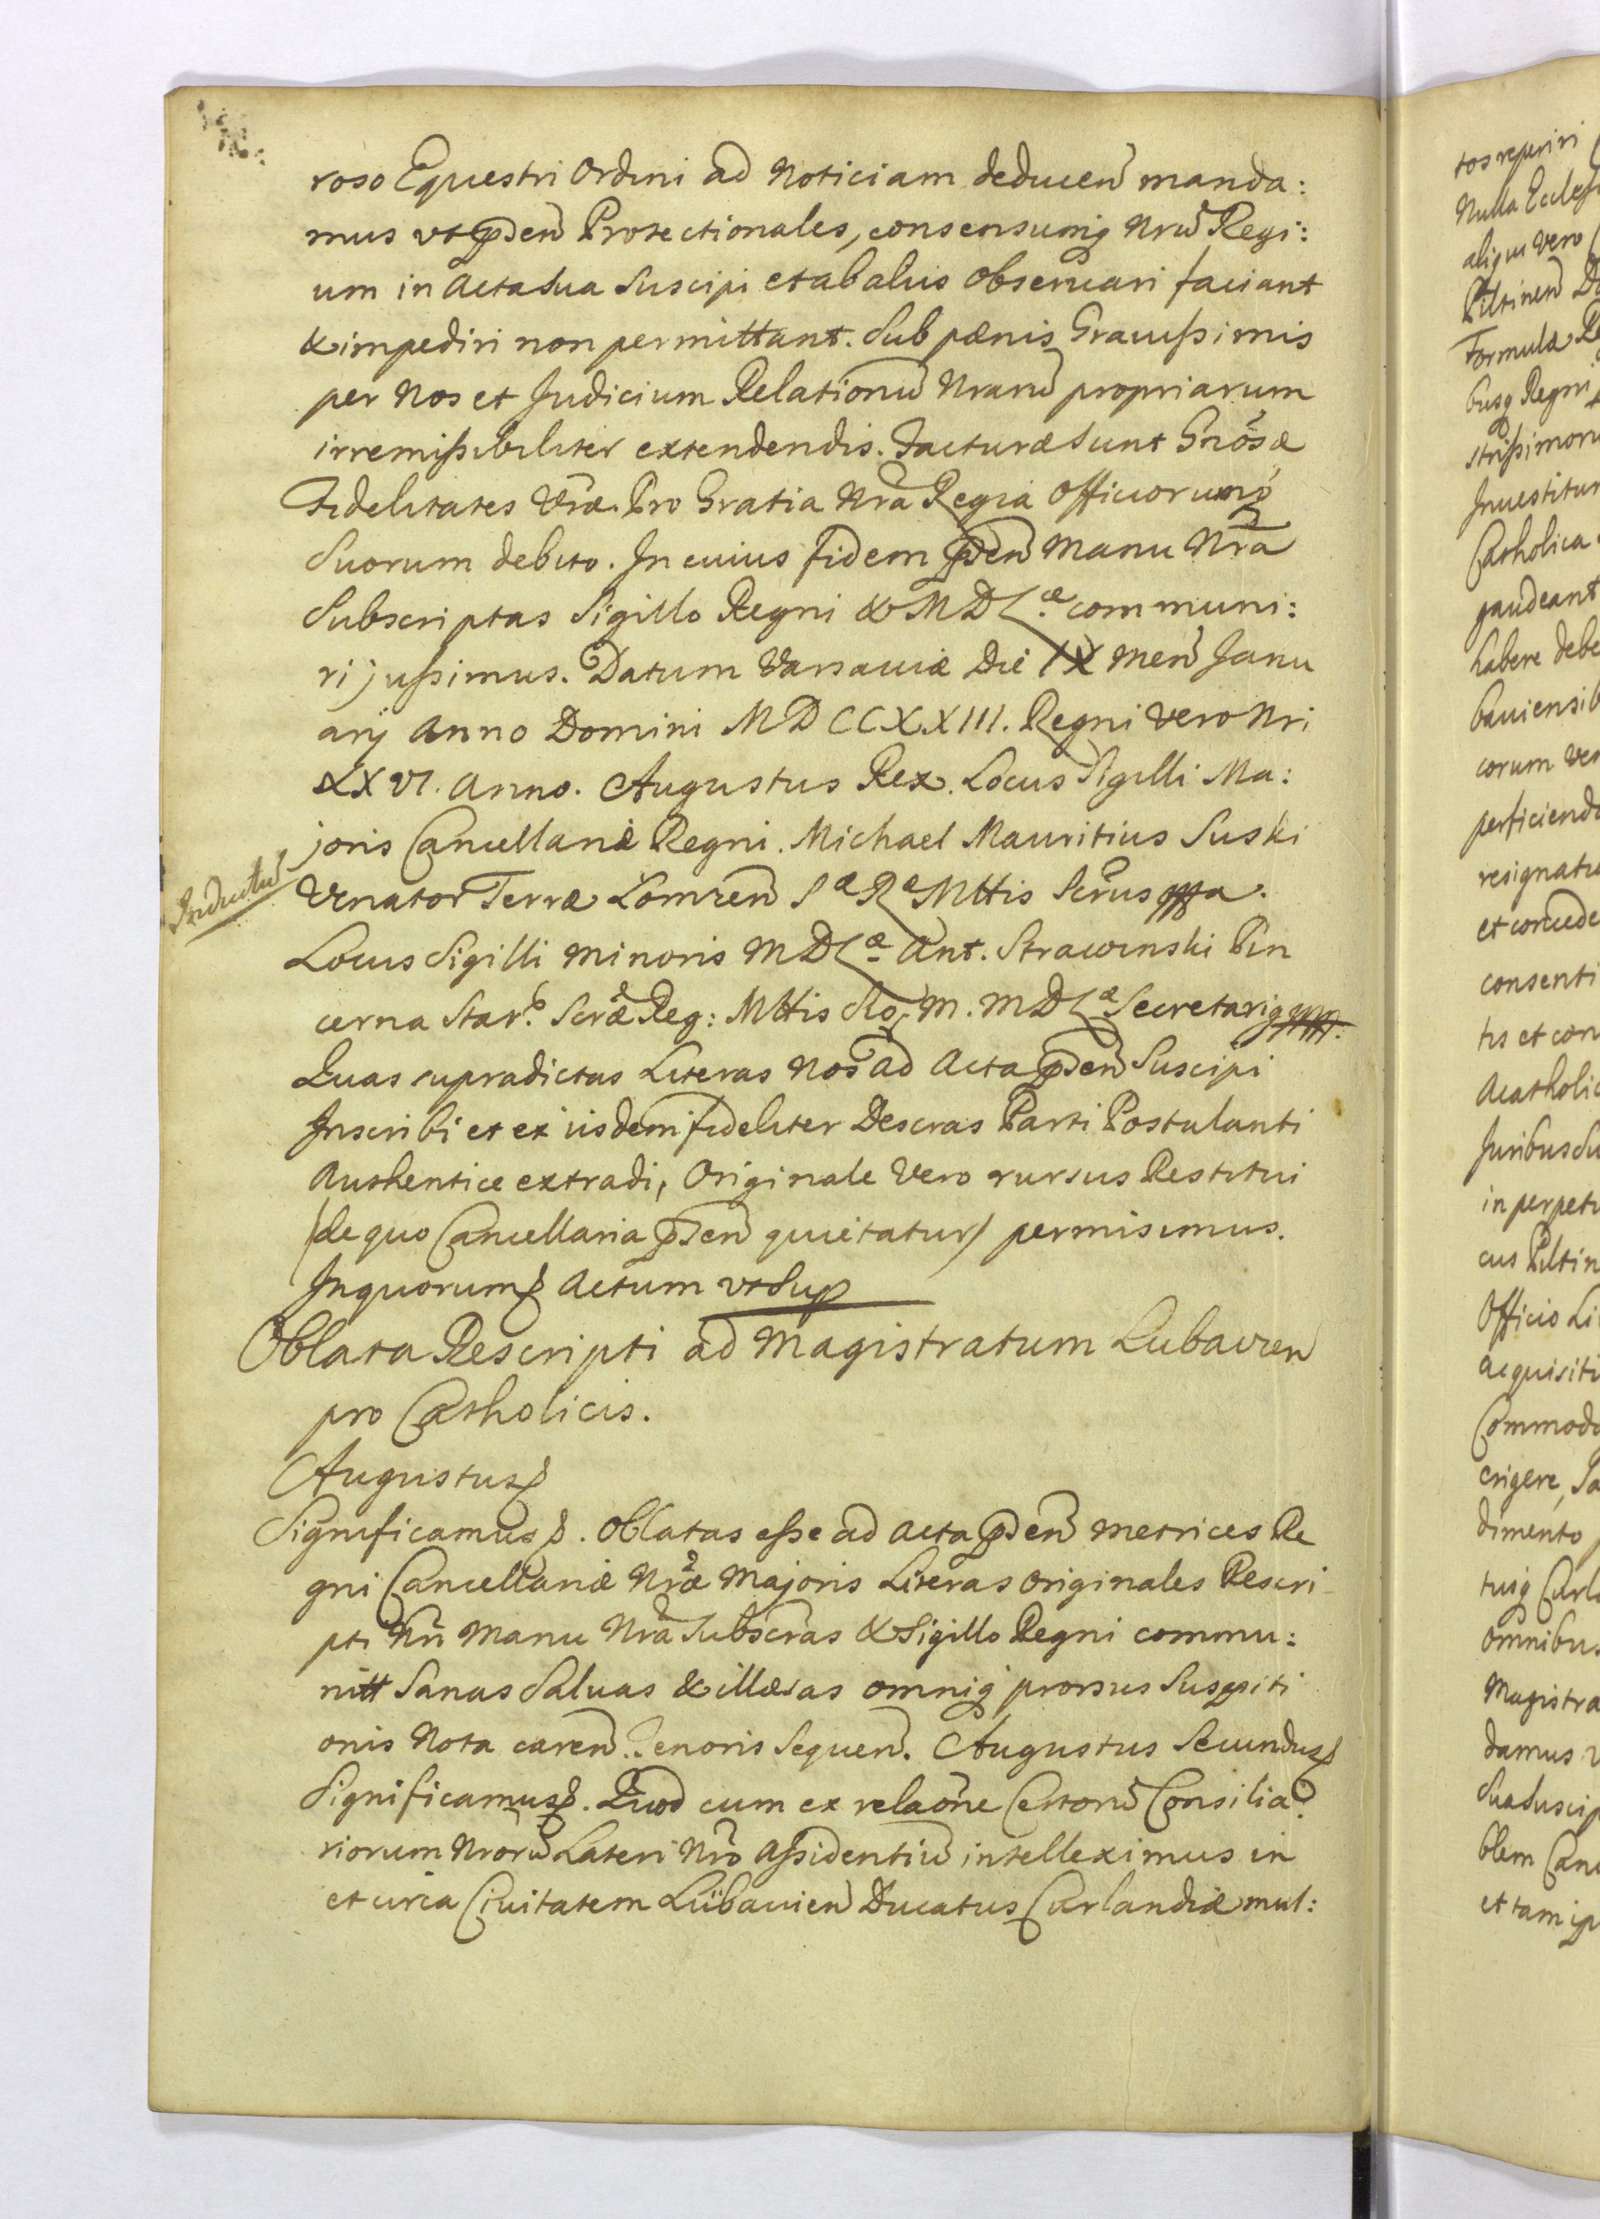 roso Equestri Ordini ad Noticiam deducen̄ manda:
mus vt p̄den̄ Protectionales, consensumq̃ Nrū Regi:
um in Acta sua suscipi et ab aliis observari faciant
& impediri non permittant. Sub pænis Gravissimis
per Nos et Judicium Relationū Nrarū propriarum
irremissibiliter extendendis. Facturæ sunt Gnōsæ
Fidelitates Vr̄æ. Pro Gratia Nr̄a Regia Officiorumq̃
Suorum debito. In cuius fidem p̄den̄ Manu Nr̄a
Subscriptas Sigillo Regni & M D L æ communi:
ri jussimus. Datum Varsaviæ Die IX Men̄ Janu
arij Anno Domini M D CC XXIII. Regni vero Nri
XXVI. Anno. Augustus Rex. Locus Sigilli Ma:
joris Cancellariæ Regni. Michael Mauritius Suski
Inductu
Venator Terræ Lomzen̄ S æ R æ Mttis Scr̄ius mppa.
Locus Sigilli Minoris M D L æ Ant. Strawinski Pin
cerna Star: Scr̄æ Reg: Mttis Sig. M. M D L æ Secretariq̃ mpp.
Quas supradictas Literas Nos ad Acta p̄den̄ Suscipi
Inscribi et ex iisdem fideliter Descras Parti Postulanti
Authentice extradi, Originale Vero rursus Restitui
/de quo Cancellaria p̄den̄ quietatur/ permisimus.
In quorum & Actum vt Sup
Oblata Rescripti ad Magistratum Lubavien
pro Catholicis.
Augustus &
Significamus &. Oblatas esse ad Acta p̄den̄ Metrices Re
gni Cancellariæ Nr̄æ Majoris Literas Originales Rescri
pti Nr̄i Manu Nr̄a Subscr̄as & Sigillo Regni commu:
nitt Sanas Salvas & illæsas omniq̃ prorsus Suspiti
onis Nota caren̄ Tenoris Sequen̄. Augustus Secundus &
Significamus &. Quod cum ex relaōne Certorū Consilia
riorum Nrorū Lateri Nr̄o Assidentiū intelleximus in
et circa Civitatem Lübavien̄ Ducatus Curlandiæ mul:
tos reperiri
Nulla Eccles
aliqui vero
Piltinen̄
Formula Re
busq̃ Regni
strissimoru
Investitur
Catholica
gaudeant
habere debe
baviensib
corum ver
perficienda
resignatu
et concede
consenti
tis et con
Acatholic
Juribus Su
in perpetu
cus Piltin
Officio Li
acquisiti
Commodo
erigere, Sa
dimento
tusq̃ Curla
omnibus
Magistra
damus v
Sua Suscip
blem Canc
et tam ip